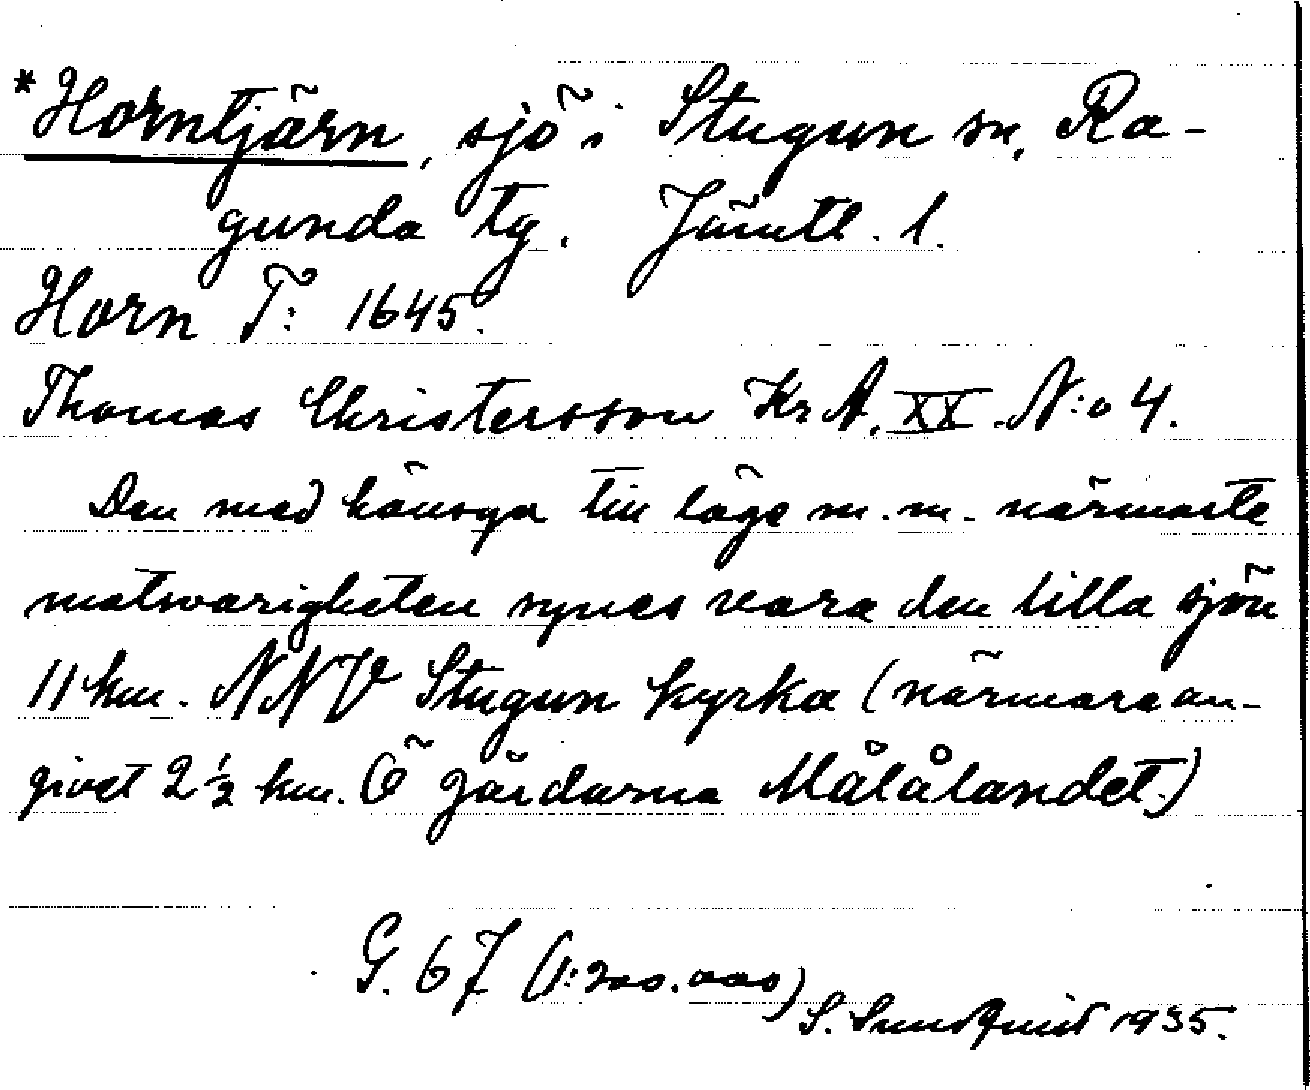 *Horntjärn, sjö i Stugun sn, Ra-
gunda tg. Jämtl. l.
Horn T: 1645.
Thomas Christersson KrA. XX. N:o 4.
Den med hänsyn till läge m.m. närmaste
motsvarigheten synes vara den lilla sjön
11 km. NNV Stugun kyrka (närmare an-
givet 2 ½ km. Ö gårdarna Målålandet.)
G. 67 (1:200.000)
S. Sundquist 1935.